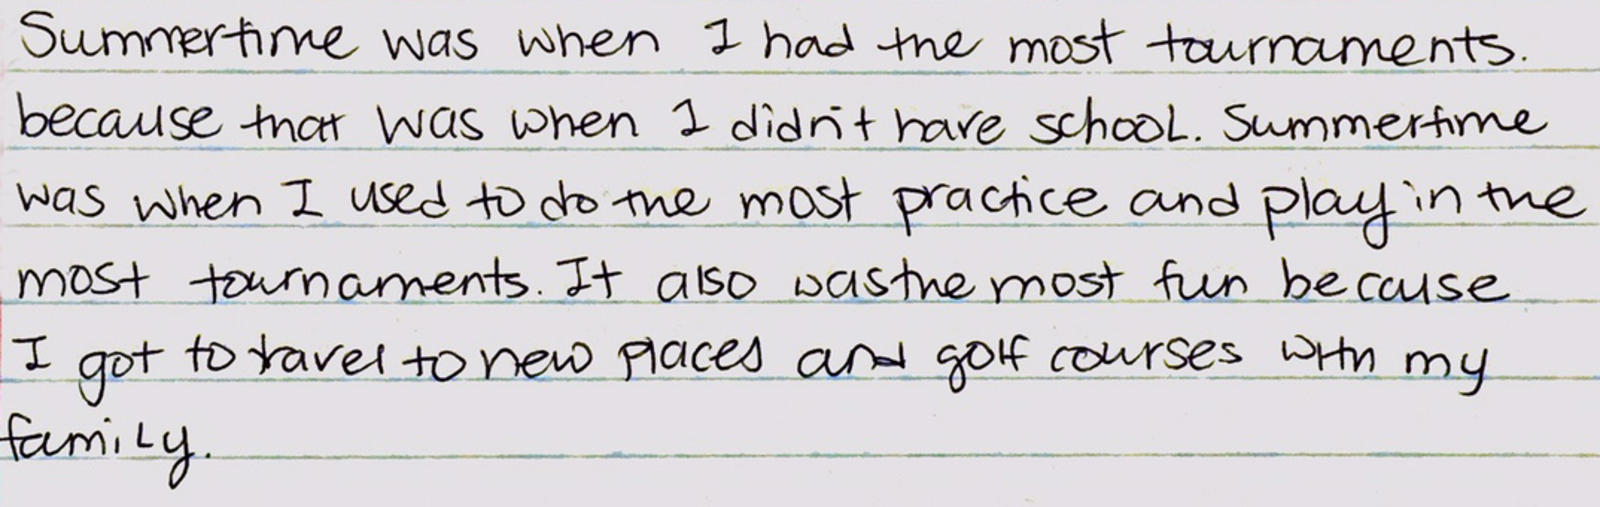 Summertime was when I had the most tournaments.
because that was when I didn't have school. Summertime
was when I used to do the most practice and play in the
most tournaments. It also was the most fun because
I got to travel to new places and golf courses with my
family.